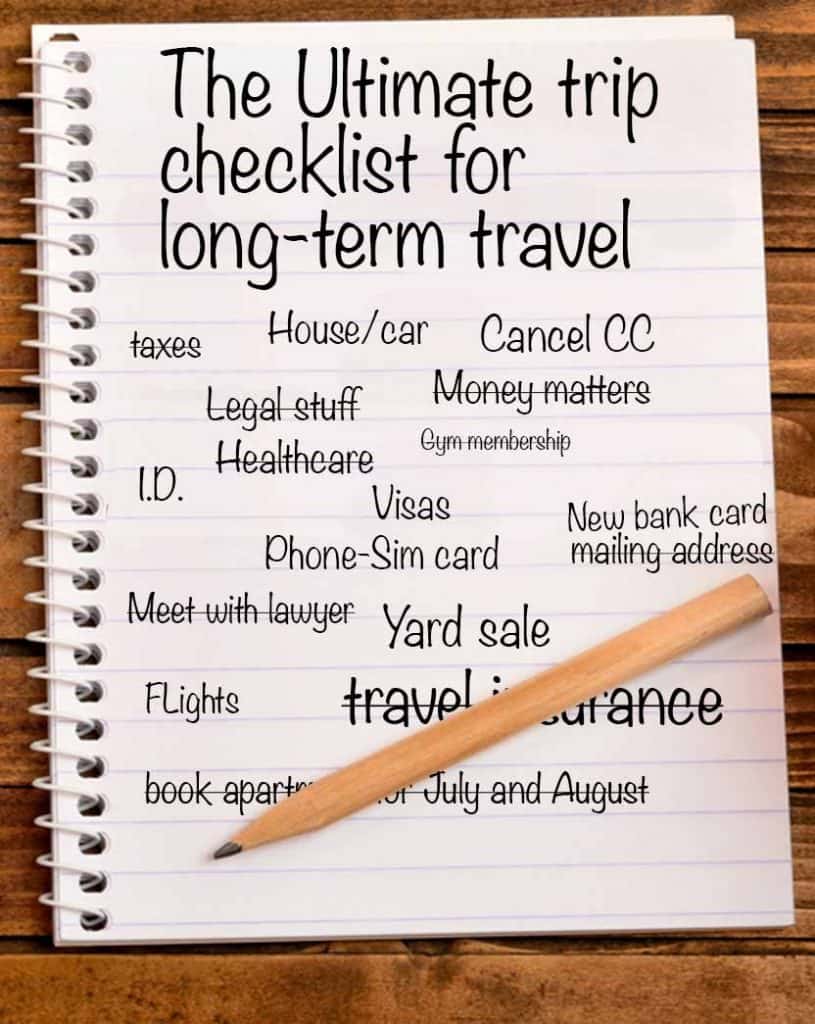 The Ultimate trip
checklist for
long-term travel
taxes House/car Cancel CC
Legal stuff Money matters
Healthcare Gym membership
I.D. Visas New bank card
Phone-Sim card mailing address
Meet with lawyer Yard sale
FLights travel
book July and August